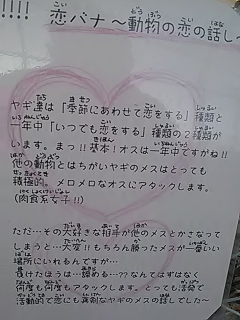 !!!! 恋バナ～動物の恋の話し～
ヤギ達は「季節にあわせて恋をする」種類と
一年中「いつでも恋をする」種類の2種類が
います。まっ!!基本!オスは一年中ですがね!!
他の動物とはちがいヤギのメスはとっても
積極的。メロメロなオスにアタックします。
(肉食系女子!!)
ただ…その大好きな相手が他のメスとかさなって
しまうと…大変!!もちろん勝ったメスが一番いい
場所にいれるんですが…
負けたほうは…諦める…??なんてはずはなく
何度も何度もアタックします。とっても活発で
活動的で恋にも真剣なヤギのメスの話しでした～